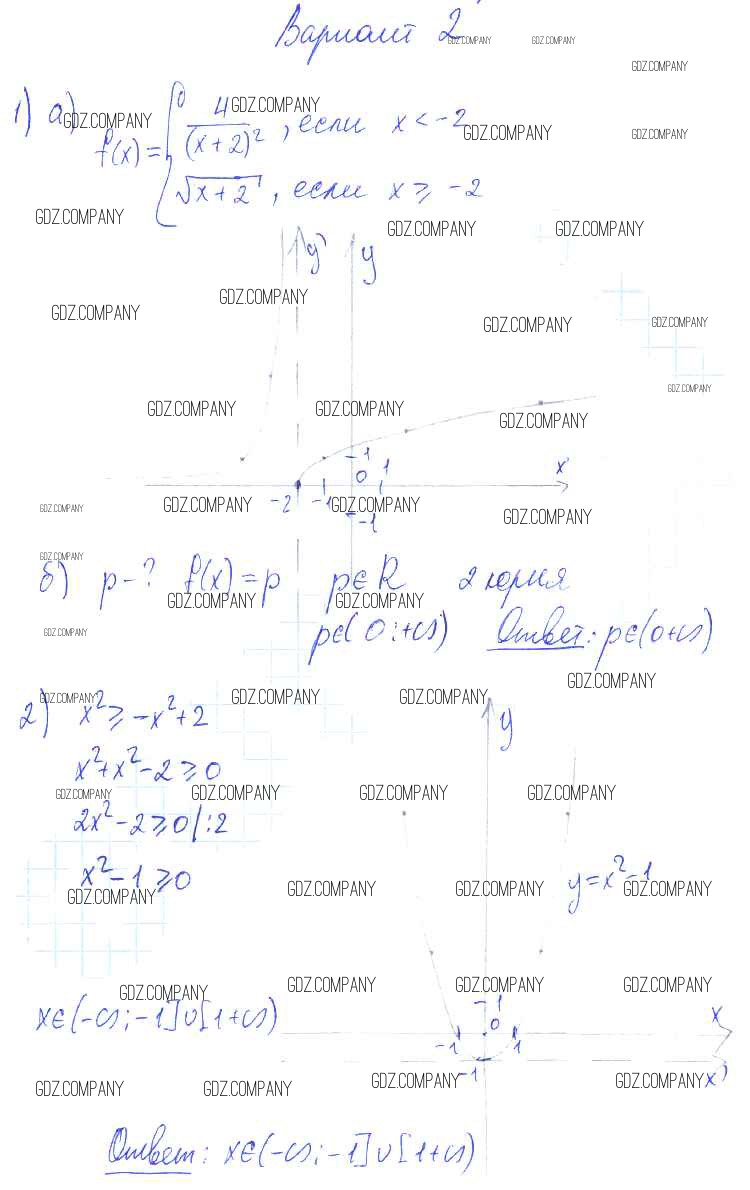 Вариант 2
1) а) f(x) = { 4/(x+2)², если x < -2
√x+2, если x ≥ -2
y' y
-1
0 1 x'
-2 -1
-1
б) p-? f(x)=p p∈R 2 корня
p∈(0;+∞) Ответ: p∈(0+∞)
2) x² ≥ -x²+2
y
x²+x²-2≥0
2x²-2≥0 |:2
x²-1≥0
y=x²-1
x∈(-∞;-1]∪[1+∞)
-1
0 x
-1 1
-1 x'
Ответ: x∈(-∞;-1]∪[1+∞)
GDZ.COMPANY